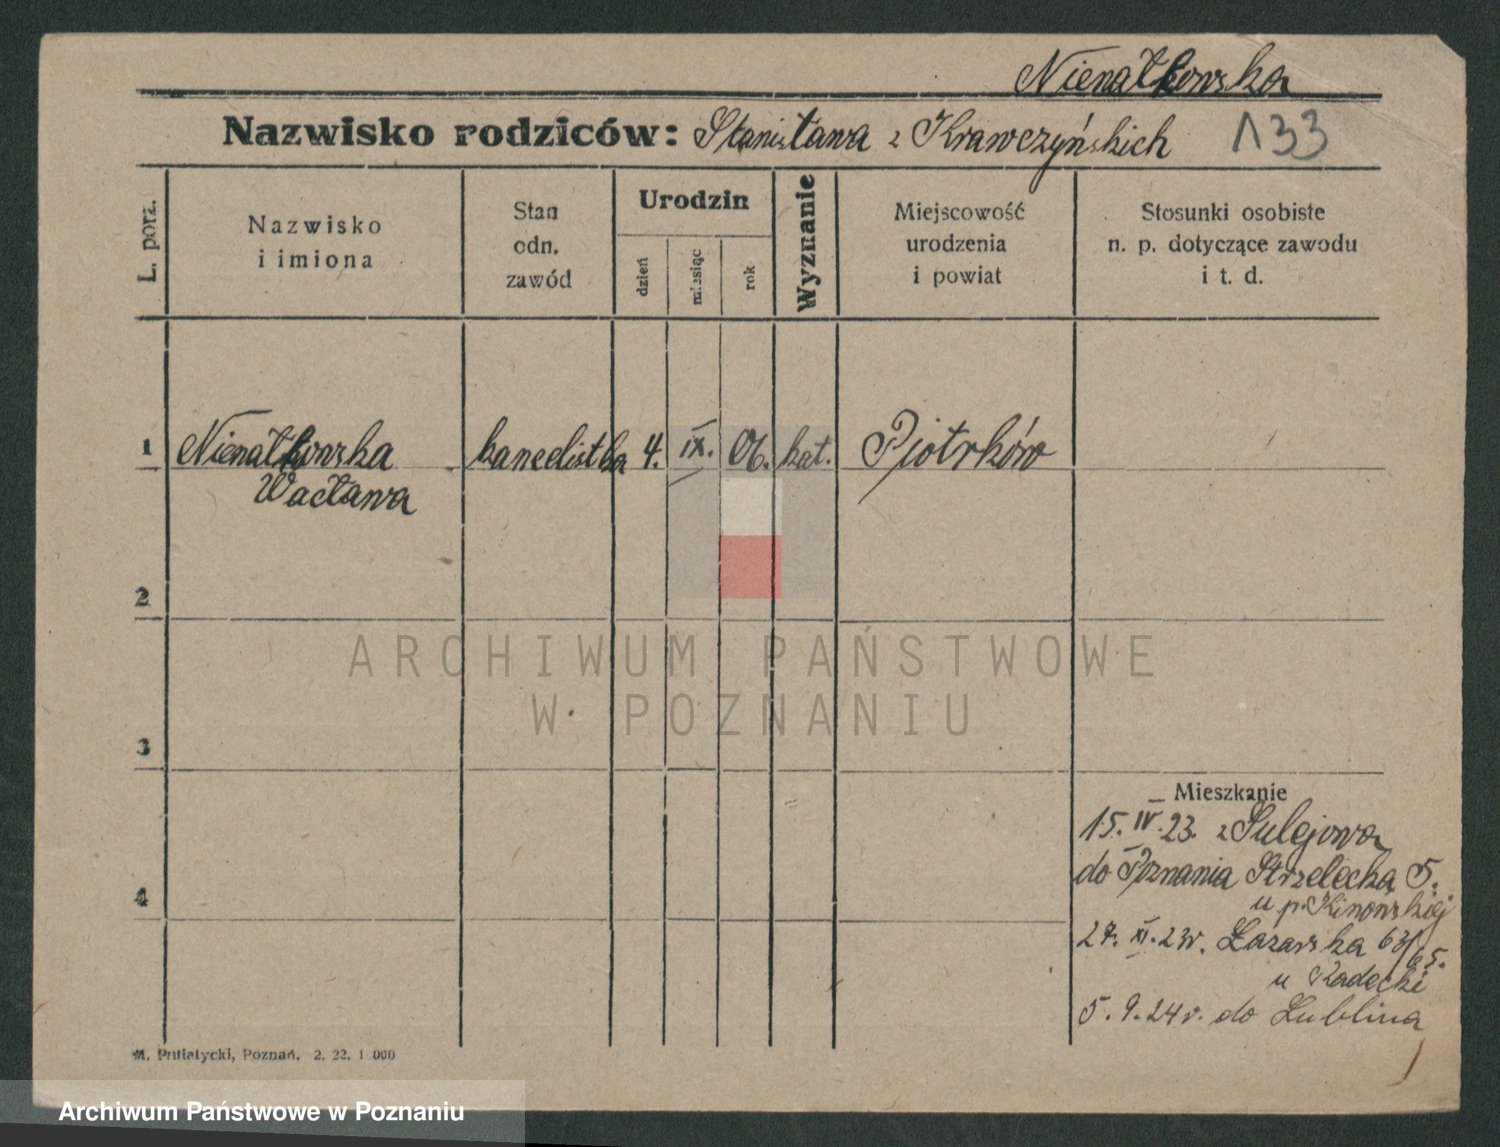 Nienałtowska
Nazwisko rodziców: Stanisława z Krawczyńskich 133
L. porz.
Nazwisko
i imiona
Stan
odn.
zawód
Urodzin
dzień
miesiąc
rok
Wyznanie
Miejscowość
urodzenia
i powiat
Stosunki osobiste
n. p. dotyczące zawodu
i t. d.
1 Nienałtowska 4. IX. 06. kat. Piotrków
Wacława
2
3
4
Mieszkanie
15. IV. 23. z Sulejowa
do Poznania Strzelecka 5.
u p.
27. XI. 23r. Łazarska 63/65.
u Radecki
5. 9. 24r. do Lublina
M. Putiatycki, Poznań. 2. 22. 1 000
ARCHIWUM PAŃSTWOWE
W POZNANIU
Archiwum Państwowe w Poznaniu